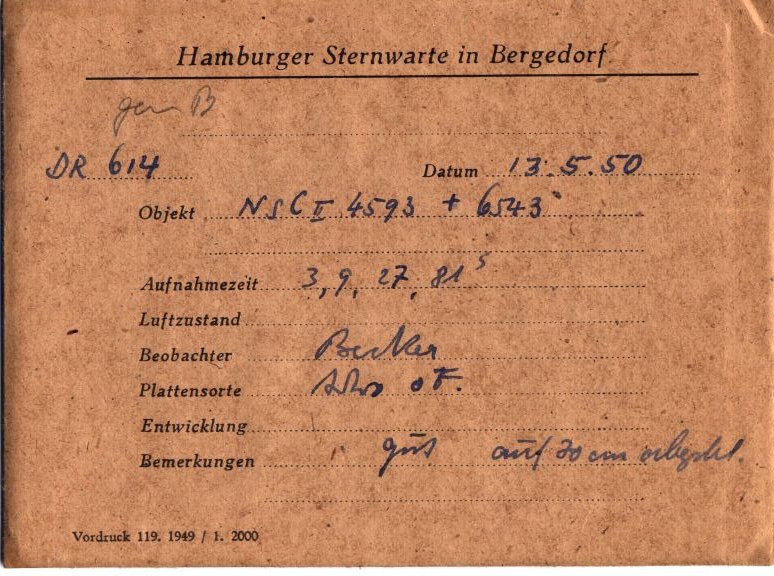 Hamburger Sternwarte in Bergedorf
DR 614 Datum 13.5.50
Objekt NGC II 4593 + 6543
Aufnahmezeit 3, 9, 27, 81 s
Luftzustand
Beobachter Becker
Plattensorte oF.
Entwicklung
Bemerkungen gut auf 30 cm
Vordruck 119. 1949 / 1. 2000